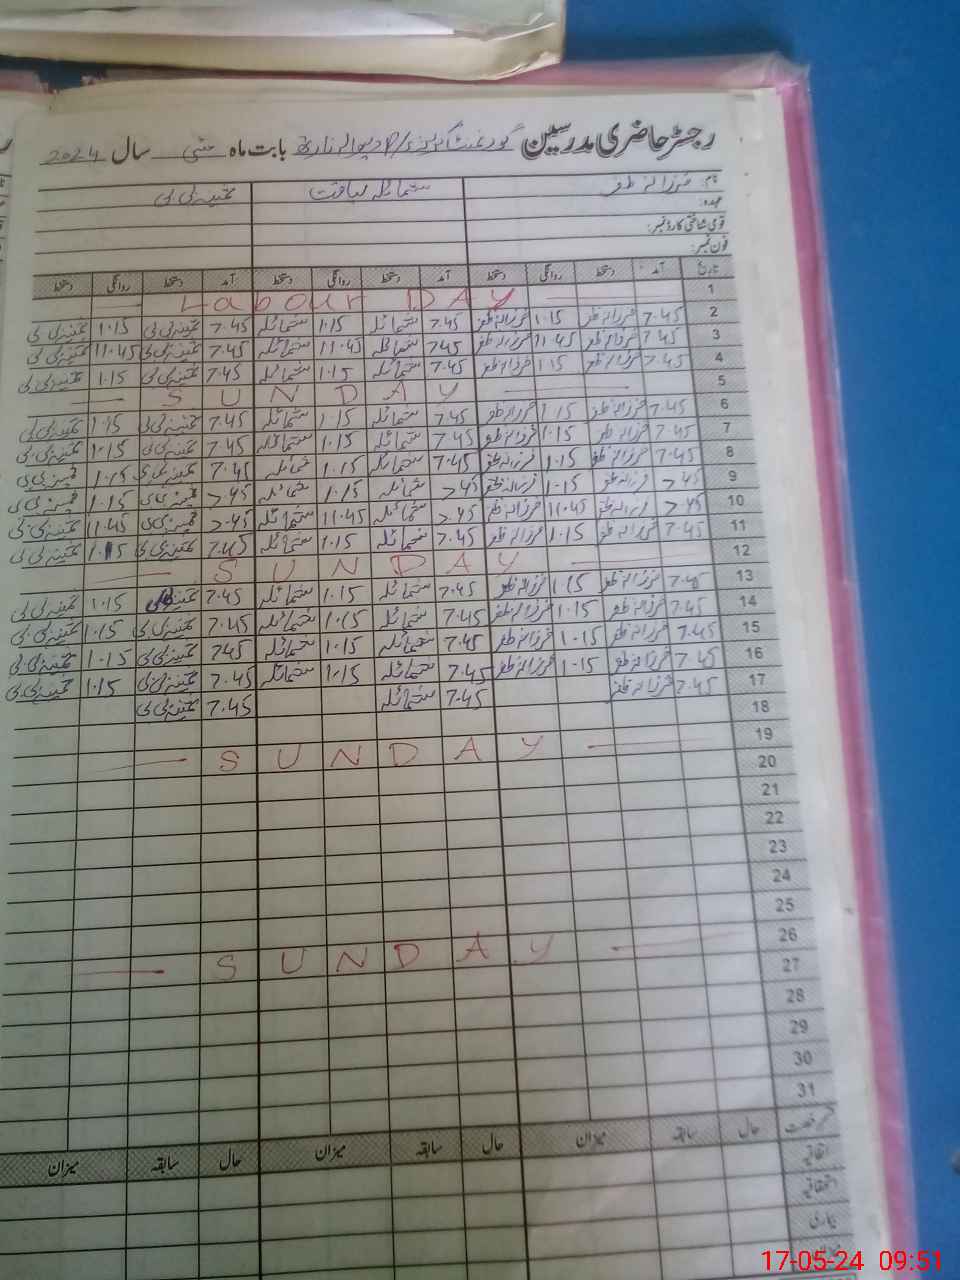 رجسٹر حاضری مدرسین گورنمنٹ گرلز بابت ماہ مئی سال 2024
نام: فرزانہ ظفر شمائلہ لیاقت ثمینہ بی بی
عہدہ:
قومی شناختی کارڈ نمبر:
فون نمبر:
تاریخ آمد دستخط روانگی دستخط آمد دستخط روانگی دستخط آمد دستخط روانگی دستخط
1 Labour DAY
2 7.45 فرزانہ ظفر 1.15 فرزانہ ظفر 7.45 شمائلہ 1.15 شمائلہ 7.45 ثمینہ بی بی 1.15 ثمینہ بی بی
3 7.45 فرزانہ ظفر 11.45 فرزانہ ظفر 7.45 شمائلہ 11.45 شمائلہ 7.45 ثمینہ بی بی 11.45 ثمینہ بی بی
4 7.45 فرزانہ ظفر 1.15 فرزانہ ظفر 7.45 شمائلہ 1.15 شمائلہ 7.45 ثمینہ بی بی 1.15 ثمینہ بی بی
5 SUNDAY
6 7.45 فرزانہ ظفر 1.15 فرزانہ ظفر 7.45 شمائلہ 1.15 شمائلہ 7.45 ثمینہ بی بی 1.15 ثمینہ بی بی
7 7.45 فرزانہ ظفر 1.15 فرزانہ ظفر 7.45 شمائلہ 1.15 شمائلہ 7.45 ثمینہ بی بی 1.15 ثمینہ بی بی
8 7.45 فرزانہ ظفر 1.15 فرزانہ ظفر 7.45 شمائلہ 1.15 شمائلہ 7.45 ثمینہ بی بی 1.15 ثمینہ بی بی
9 7.45 فرزانہ ظفر 1.15 فرزانہ ظفر 7.45 شمائلہ 1.15 شمائلہ 7.45 ثمینہ بی بی 1.15 ثمینہ بی بی
10 7.45 فرزانہ ظفر 11.45 فرزانہ ظفر 7.45 شمائلہ 11.45 شمائلہ 7.45 ثمینہ بی بی 11.45 ثمینہ بی بی
11 7.45 فرزانہ ظفر 1.15 فرزانہ ظفر 7.45 شمائلہ 1.15 شمائلہ 7.45 ثمینہ بی بی 1.15 ثمینہ بی بی
12 SUNDAY
13 7.45 فرزانہ ظفر 1.15 فرزانہ ظفر 7.45 شمائلہ 1.15 شمائلہ 7.45 ثمینہ بی بی 1.15 ثمینہ بی بی
14 7.45 فرزانہ ظفر 1.15 فرزانہ ظفر 7.45 شمائلہ 1.15 شمائلہ 7.45 ثمینہ بی بی 1.15 ثمینہ بی بی
15 7.45 فرزانہ ظفر 1.15 فرزانہ ظفر 7.45 شمائلہ 1.15 شمائلہ 7.45 ثمینہ بی بی 1.15 ثمینہ بی بی
16 7.45 فرزانہ ظفر 1.15 فرزانہ ظفر 7.45 شمائلہ 1.15 شمائلہ 7.45 ثمینہ بی بی 1.15 ثمینہ بی بی
17 7.45 فرزانہ ظفر 7.45 شمائلہ 7.45 ثمینہ بی بی
18
19 SUNDAY
20
21
22
23
24
25
26 SUNDAY
27
28
29
30
31
قسم رخصت حال سابقہ میزان حال سابقہ میزان حال سابقہ میزان
اتفاقیہ
استحقاقیہ
بیماری
17-05-24 09:51